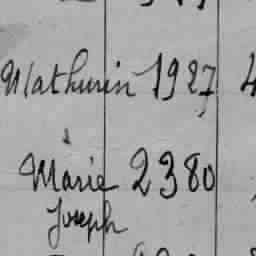 Mathurin 1927 4
Marie 2380
Joseph